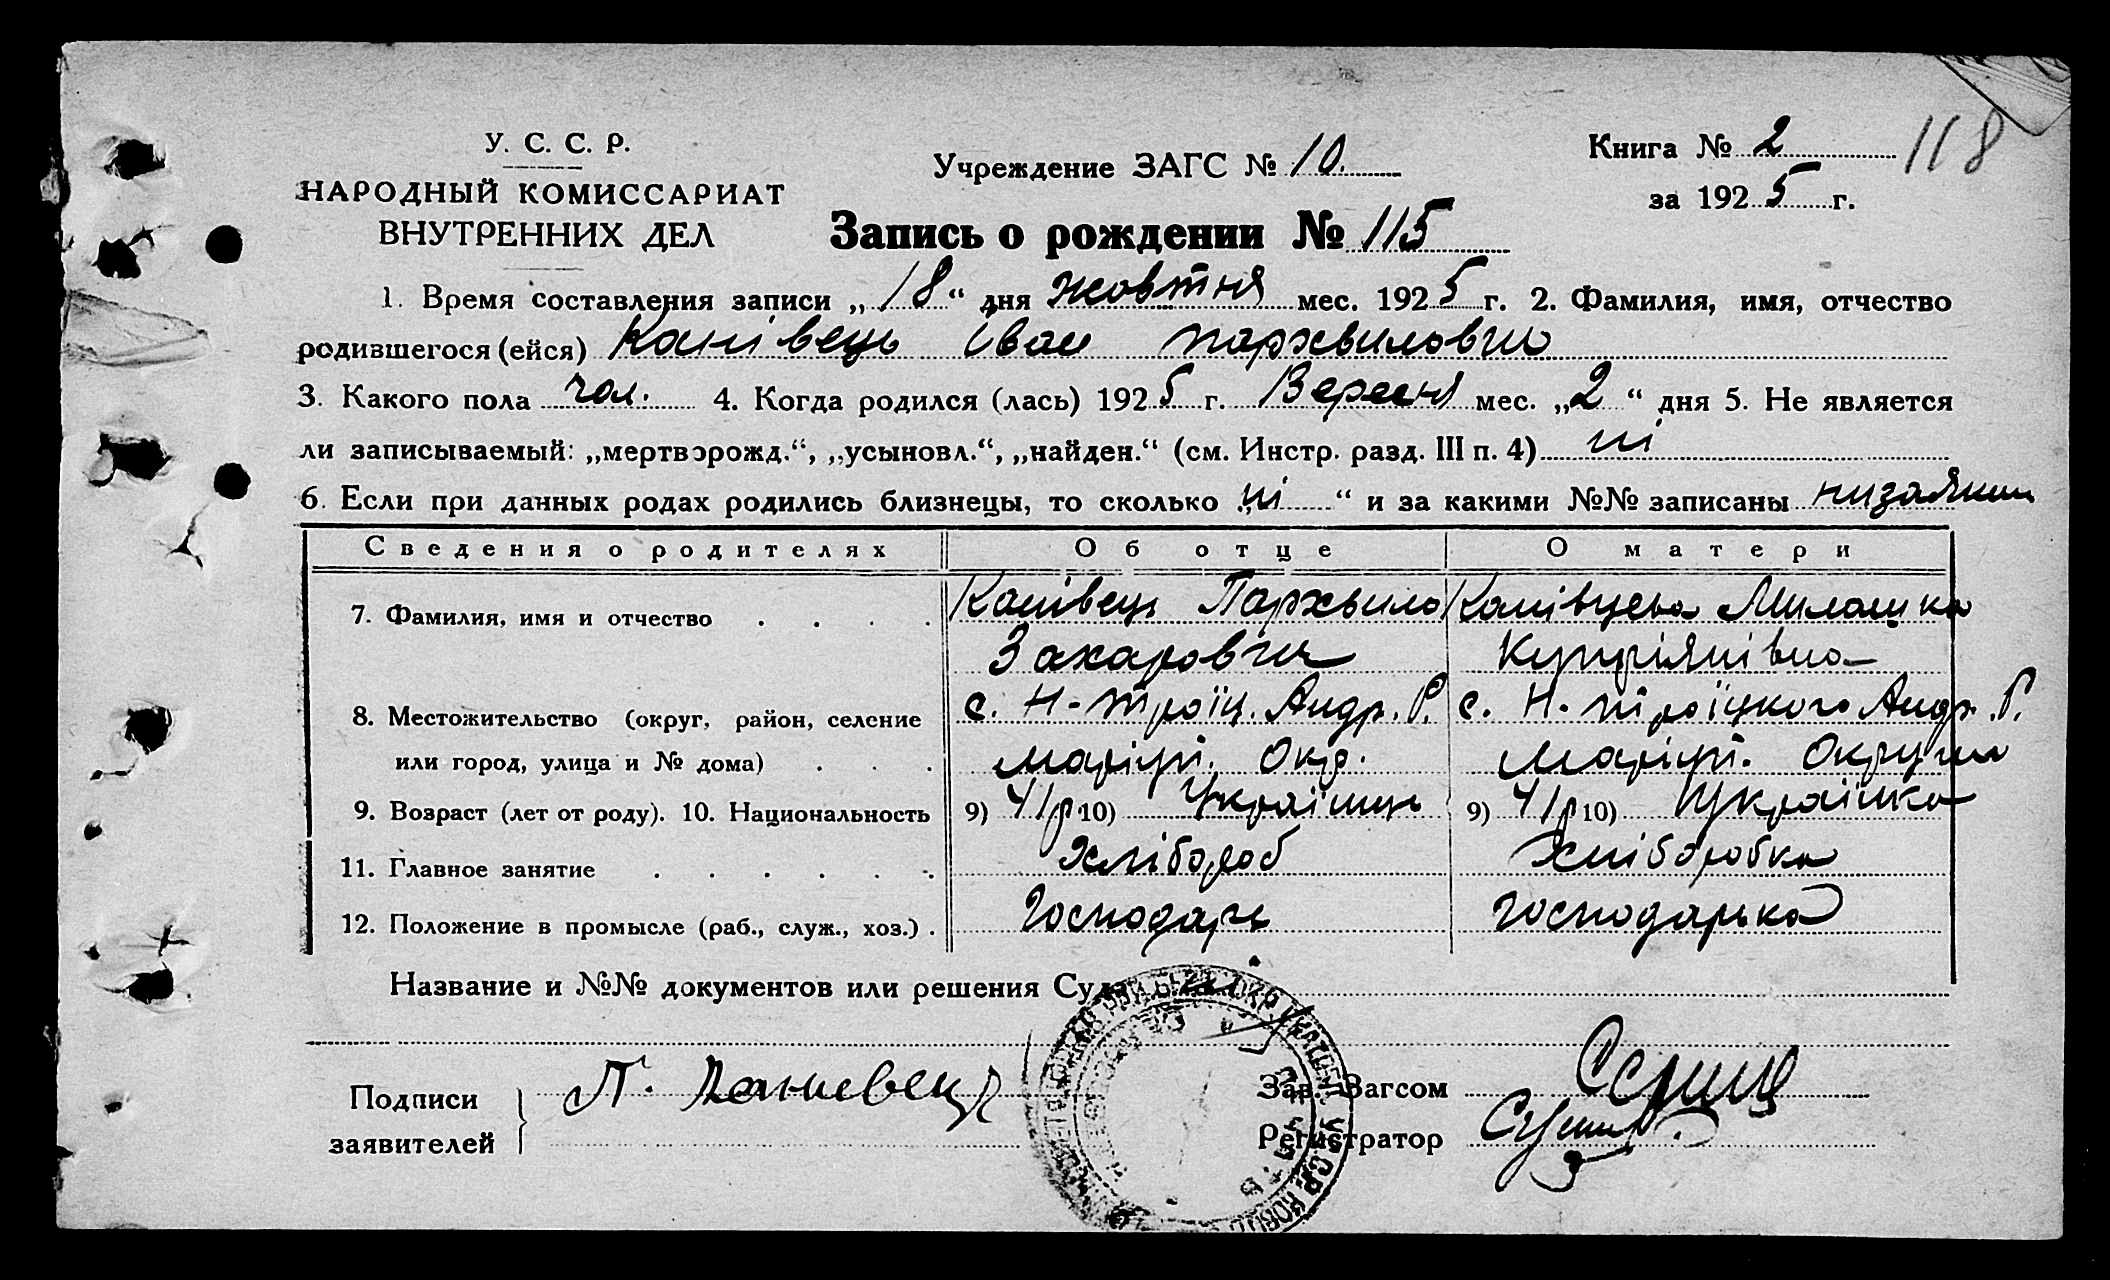 У. С. С. Р.
НАРОДНЫЙ КОМИССАРИАТ
ВНУТРЕННИХ ДЕЛ
Учреждение ЗАГС № 10.
Книга № 2
118
за 1925 г.
Запись о рождении № 115
1. Время составления записи „18“ дня жовтня мес. 1925 г. 2. Фамилия, имя, отчество
родившегося (ейся) Канівець Іван Пархвилович
3. Какого пола чол. 4. Когда родился (лась) 1925 г. Вересня мес. „2“ дня 5. Не является
ли записываемый: „мертворожд.“, „усыновл.“, „найден.“ (см. Инстр. разд. III п. 4) ні
6. Если при данных родах родились близнецы, то сколько „ні“ и за какими №№ записаны низаяким
Сведения о родителях Об отце О матери
7. Фамилия, имя и отчество Канівець Пархвило Канівцева Милашка
Захарович Купріянівна
8. Местожительство (округ, район, селение с. Н-Троїц. Андр. Р. с. Н-Троїцкого Андр. Р.
или город, улица и № дома) Маріуп. Окр. Маріуп. Округи
9. Возраст (лет от роду). 10. Национальность 9) 41р 10) Українець 9) 41р 10) Українка
11. Главное занятие Хлібороб Хліборобка
12. Положение в промысле (раб., служ., хоз.) Господарь Господарька
Название и №№ документов или решения Суда
Подписи
заявителей
П. Каниевець
Зав. Загсом
Регистратор